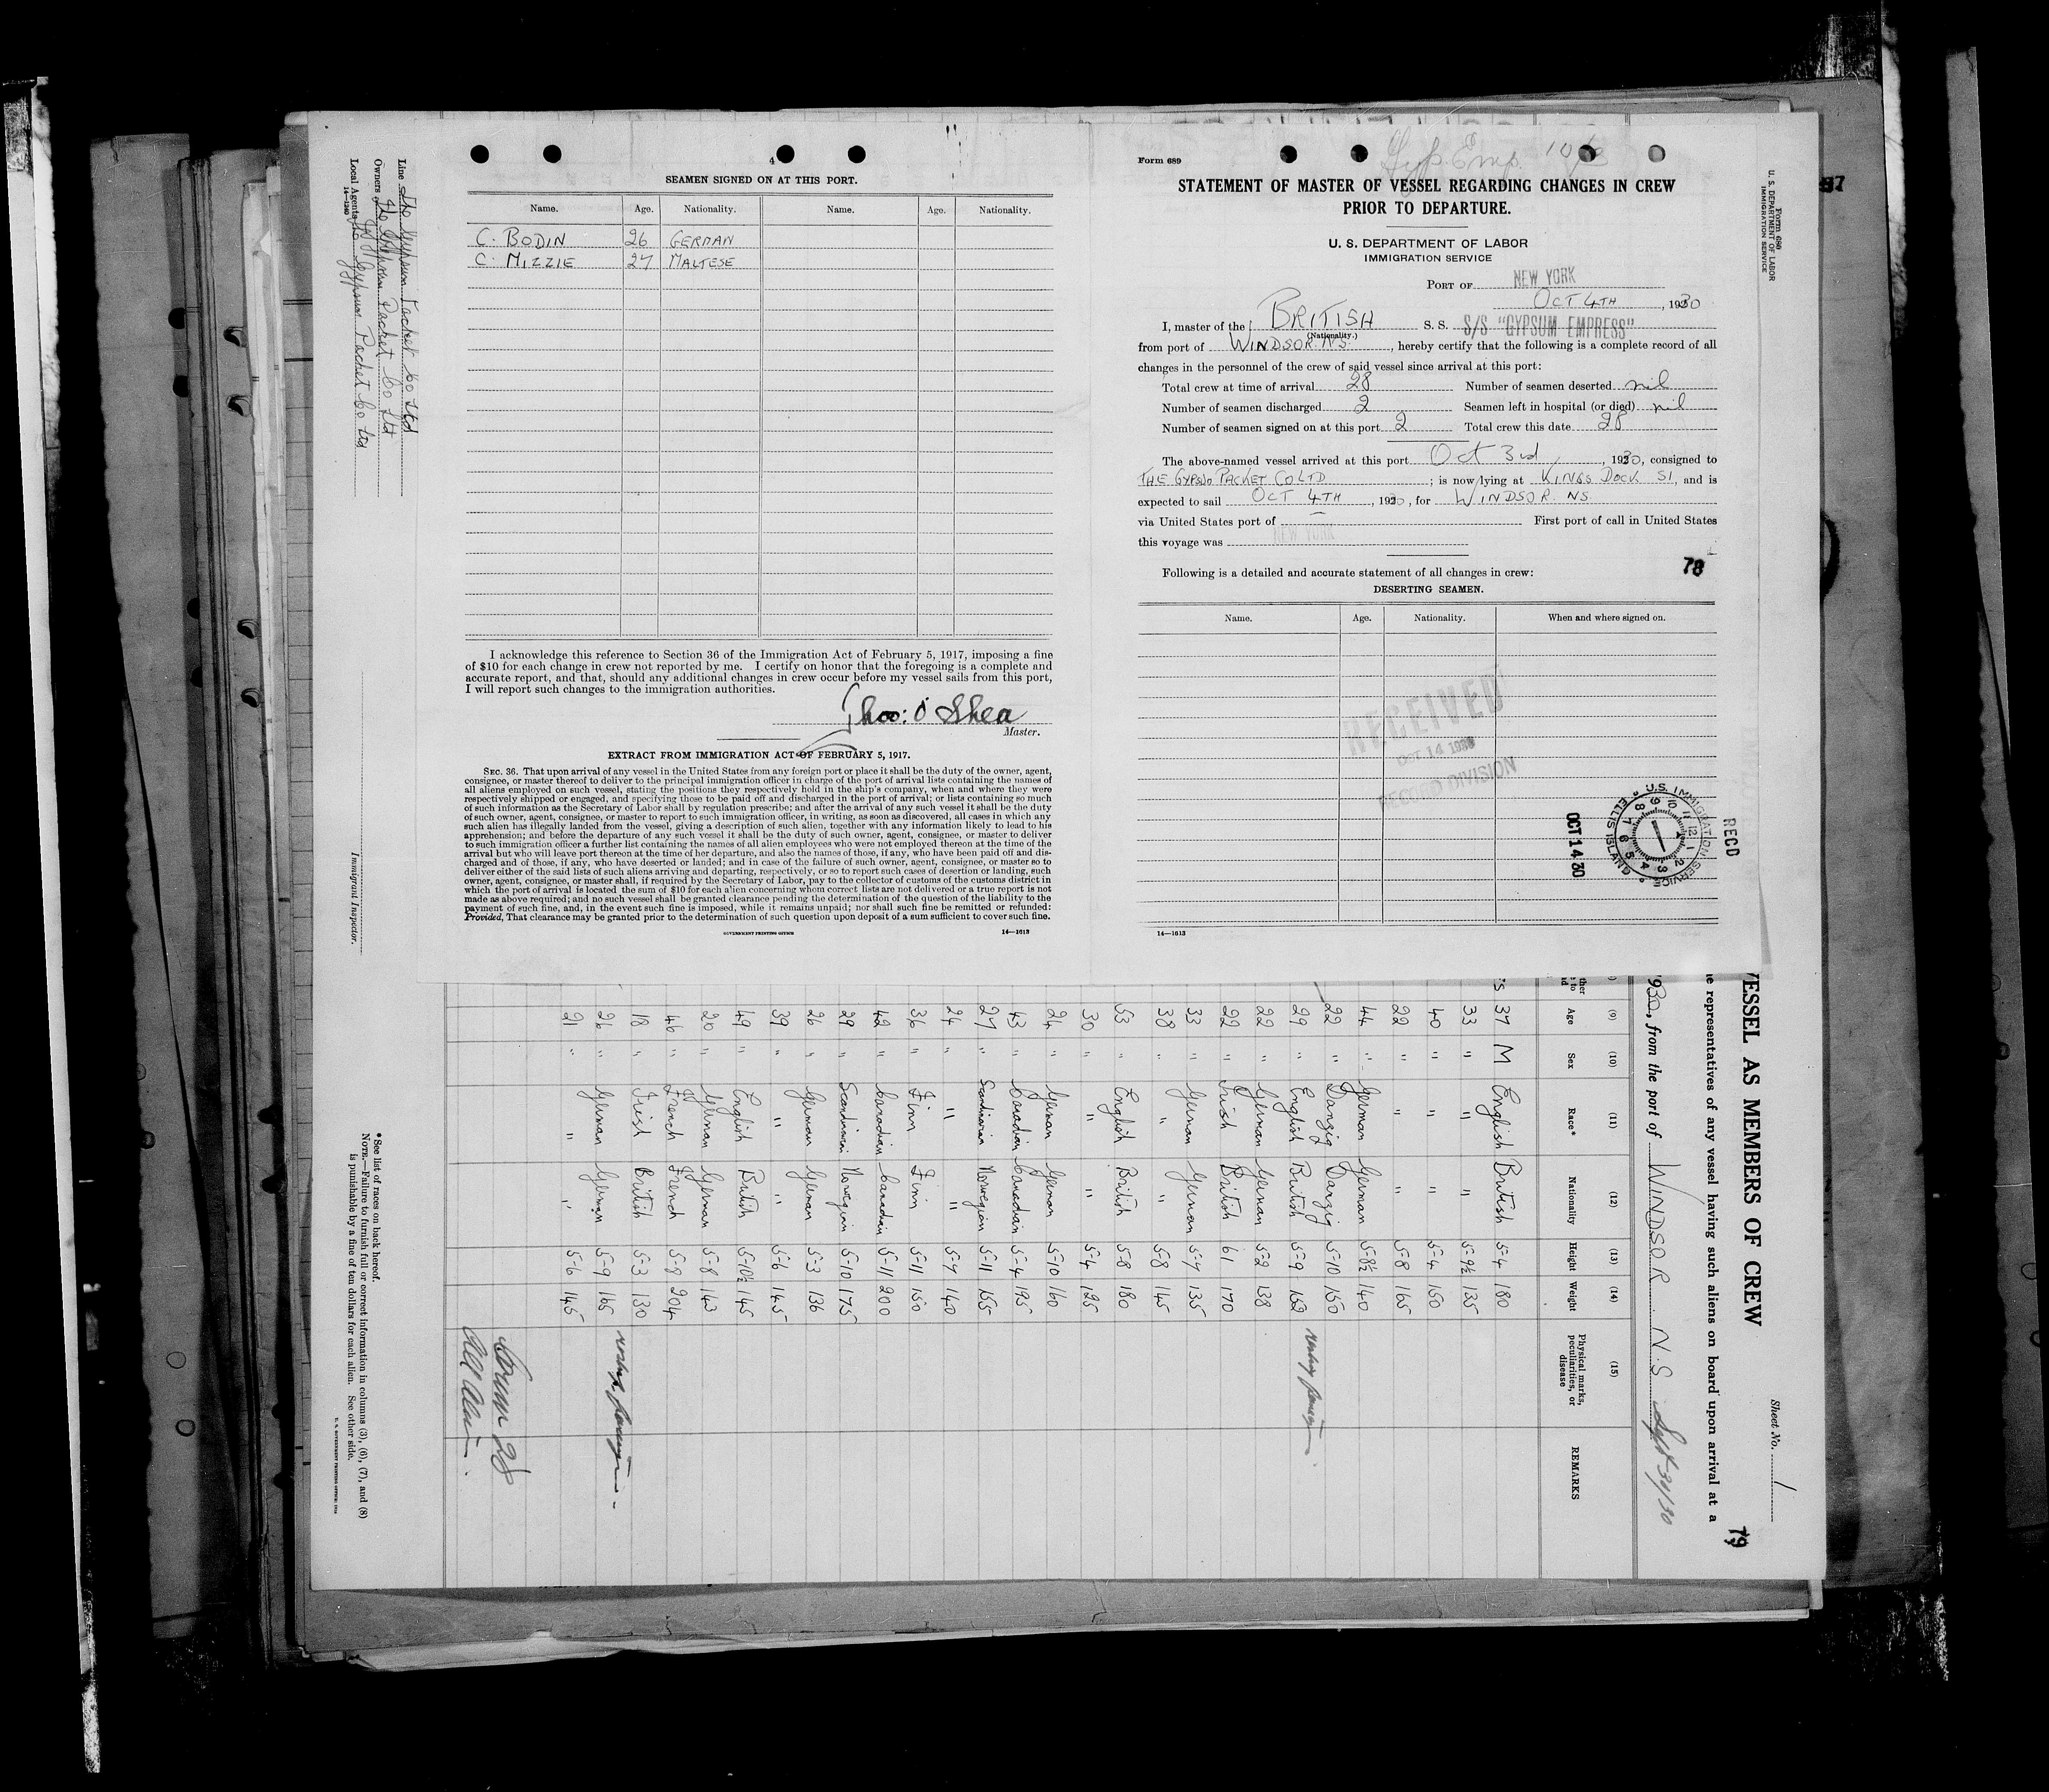 4
SEAMEN SIGNED ON AT THIS PORT.
Name. Age. Nationality. Name. Age. Nationality.
C. BODIN 26 GERMAN
C. MIZZIE 27 MALTESE
I acknowledge this reference to Section 36 of the Immigration Act of February 5, 1917, imposing a fine
of $10 for each change in crew not reported by me. I certify on honor that the foregoing is a complete and
accurate report, and that, should any additional changes in crew occur before my vessel sails from this port,
I will report such changes to the immigration authorities.
Thos: O'Shea
Master.
EXTRACT FROM IMMIGRATION ACT OF FEBRUARY 5, 1917.
SEC. 36. That upon arrival of any vessel in the United States from any foreign port or place it shall be the duty of the owner, agent,
consignee, or master thereof to deliver to the principal immigration officer in charge of the port of arrival lists containing the names of
all aliens employed on such vessel, stating the positions they respectively hold in the ship's company, when and where they were
respectively shipped or engaged, and specifying those to be paid off and discharged in the port of arrival; or lists containing so much
of such information as the Secretary of Labor shall by regulation prescribe; and after the arrival of any such vessel it shall be the duty
of such owner, agent, consignee, or master to report to such immigration officer, in writing, as soon as discovered, all cases in which any
such alien has illegally landed from the vessel, giving a description of such alien, together with any information likely to lead to his
apprehension; and before the departure of any such vessel it shall be the duty of such owner, agent, consignee, or master to deliver
to such immigration officer a further list containing the names of all alien employees who were not employed thereon at the time of the
arrival but who will leave port thereon at the time of her departure, and also the names of those, if any, who have been paid off and dis-
charged and of those, if any, who have deserted or landed; and in case of the failure of such owner, agent, consignee, or master so to
deliver either of the said lists of such aliens arriving and departing, respectively, or so to report such cases of desertion or landing, such
owner, agent, consignee, or master shall, if required by the Secretary of Labor, pay to the collector of customs of the customs district in
which the port of arrival is located the sum of $10 for each alien concerning whom correct lists are not delivered or a true report is not
made as above required; and no such vessel shall be granted clearance pending the determination of the question of the liability to the
payment of such fine, and, in the event such fine is imposed, while it remains unpaid; nor shall such fine be remitted or refunded:
Provided, That clearance may be granted prior to the determination of such question upon deposit of a sum sufficient to cover such fine.
GOVERNMENT PRINTING OFFICE 14—1613
Form 689
Gyp. Emp. 10/3
STATEMENT OF MASTER OF VESSEL REGARDING CHANGES IN CREW
PRIOR TO DEPARTURE.
U. S. DEPARTMENT OF LABOR
IMMIGRATION SERVICE
PORT OF NEW YORK
OCT 4TH, 1930
I, master of the BRITISH S. S. S/S "GYPSUM EMPRESS"
(Nationality.)
from port of WINDSOR. N.S., hereby certify that the following is a complete record of all
changes in the personnel of the crew of said vessel since arrival at this port:
Total crew at time of arrival 28 Number of seamen deserted nil
Number of seamen discharged 2 Seamen left in hospital (or died) nil
Number of seamen signed on at this port 2 Total crew this date 28
The above-named vessel arrived at this port Oct 3rd, 1930, consigned to
THE GYPSUM PACKET CO LTD; is now lying at KINGS DOCK SI, and is
expected to sail OCT 4TH, 1930, for WINDSOR. NS.
via United States port of — First port of call in United States
this voyage was NEW YORK
78
Following is a detailed and accurate statement of all changes in crew:
DESERTING SEAMEN.
Name. Age. Nationality. When and where signed on.
RECEIVED
OCT 14 1930
RECORD DIVISION
RECD
OCT 14 30
U.S. IMMIGRATION SERVICE
ELLIS ISLAND
14—1613
Form 680
U. S. DEPARTMENT OF LABOR
IMMIGRATION SERVICE
97
Sheet No. 1
79
VESSEL AS MEMBERS OF CREW
representatives of any vessel having such aliens on board upon arrival at a
1930, from the port of WINDSOR N.S Sept 30/30
(9) (10) (11) (12) (13) (14) (15)
Age Sex Race* Nationality Height Weight Physical marks, peculiarities, or disease REMARKS
37 M English British 5-4 180
33 " " " 5-9½ 135
40 " " " 5-4 150
22 " " " 5-8 165
44 " German German 5-8½ 140
22 " Danzig Danzig 5-10 150
29 " English British 5-9 159
22 " German German 5-2 138
22 " Irish British 6-1 170
33 " German German 5-7 135
38 " " " 5-8 145
53 " English British 5-8 180
30 " " " 5-4 125
24 " German German 5-10 160
43 " Canadian Canadian 5-4 195
27 " Scandinavian Norwegian 5-11 155
24 " " " 5-7 140
36 " Finn Finn 5-11 150
42 " Canadian Canadian 5-11 200
29 " Scandinavian Norwegian 5-10 175
26 " German German 5-3 136
39 " " " 5-6 145
49 " English British 5-10½ 145
20 " German German 5-8 143
46 " French French 5-8 204
18 " Irish British 5-3 130
26 " German German 5-9 165
21 " " " 5-6 145
Line The Gypsum Packet Co Ltd
Owners The Gypsum Packet Co Ltd
Local Agents The Gypsum Packet Co Ltd
14—1240
Immigrant Inspector.
*See list of races on back hereof.
NOTE.—Failure to furnish full or correct information in columns (3), (6), (7), and (8)
is punishable by a fine of ten dollars for each alien. See other side.